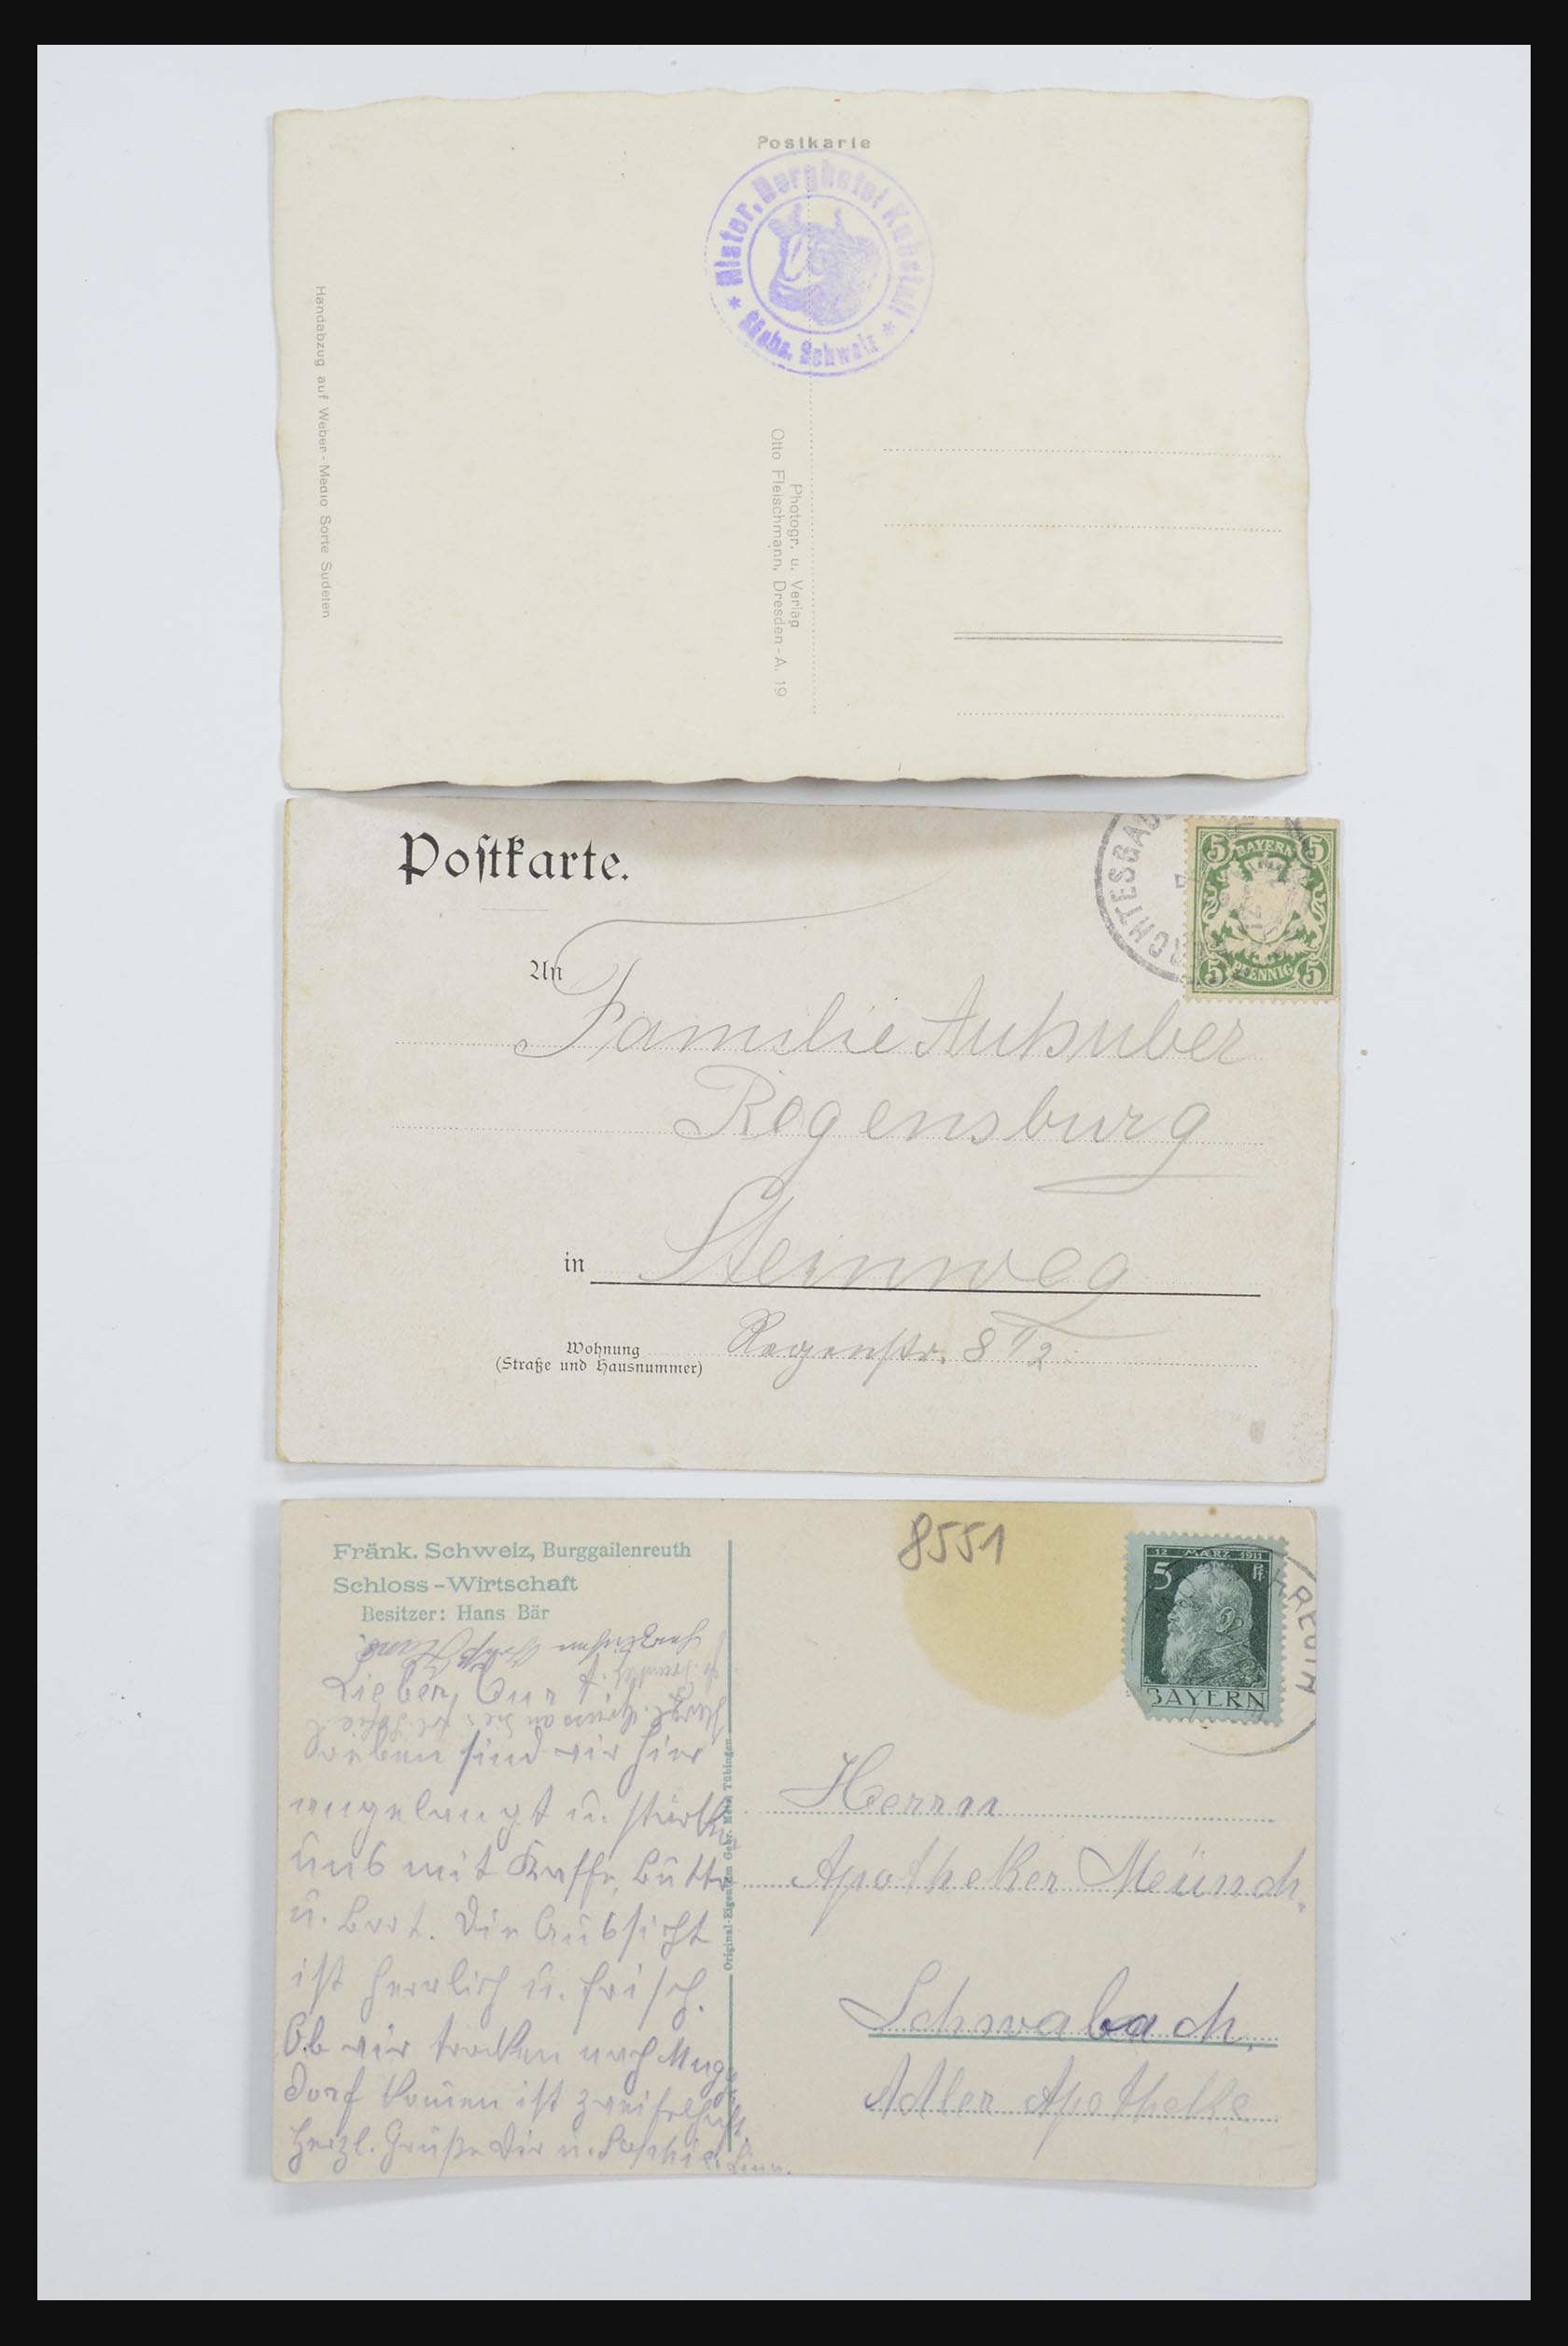 Postkarte
Histor. Berghotel Kuhstall
* Sächs. Schweiz *
Handabzug auf Weber-Medio Sorte Sudeten
Photogr. u. Verlag
Otto Fleischmann, Dresden-A. 19
Postkarte.
5 BAYERN 5
5 PFENNIG 5
An
Familie Auhuber
Regensburg
in Steinweg
Wohnung
(Straße und Hausnummer)
Regenstr. 8 1/2.
Fränk. Schweiz, Burggailenreuth
Schloss-Wirtschaft
Besitzer: Hans Bär
8551
12 MÄRZ 1911
5 Pf
BAYERN
Lieber Curt
Soeben sind wir hier
angelangt u. stärken
uns mit Kaffe, Butter
u. Brot. Die Aussicht
ist herrlich u. frisch.
Ob wir trocken nach Mugg
dorf komen ist zweifelhaft.
Herzl. Grüße Dir u. Sophie
Original-Eigentum Gebr. Metz, Tübingen
Herrn
Apotheker Meünch.
Schwabach.
Adler Apotheke